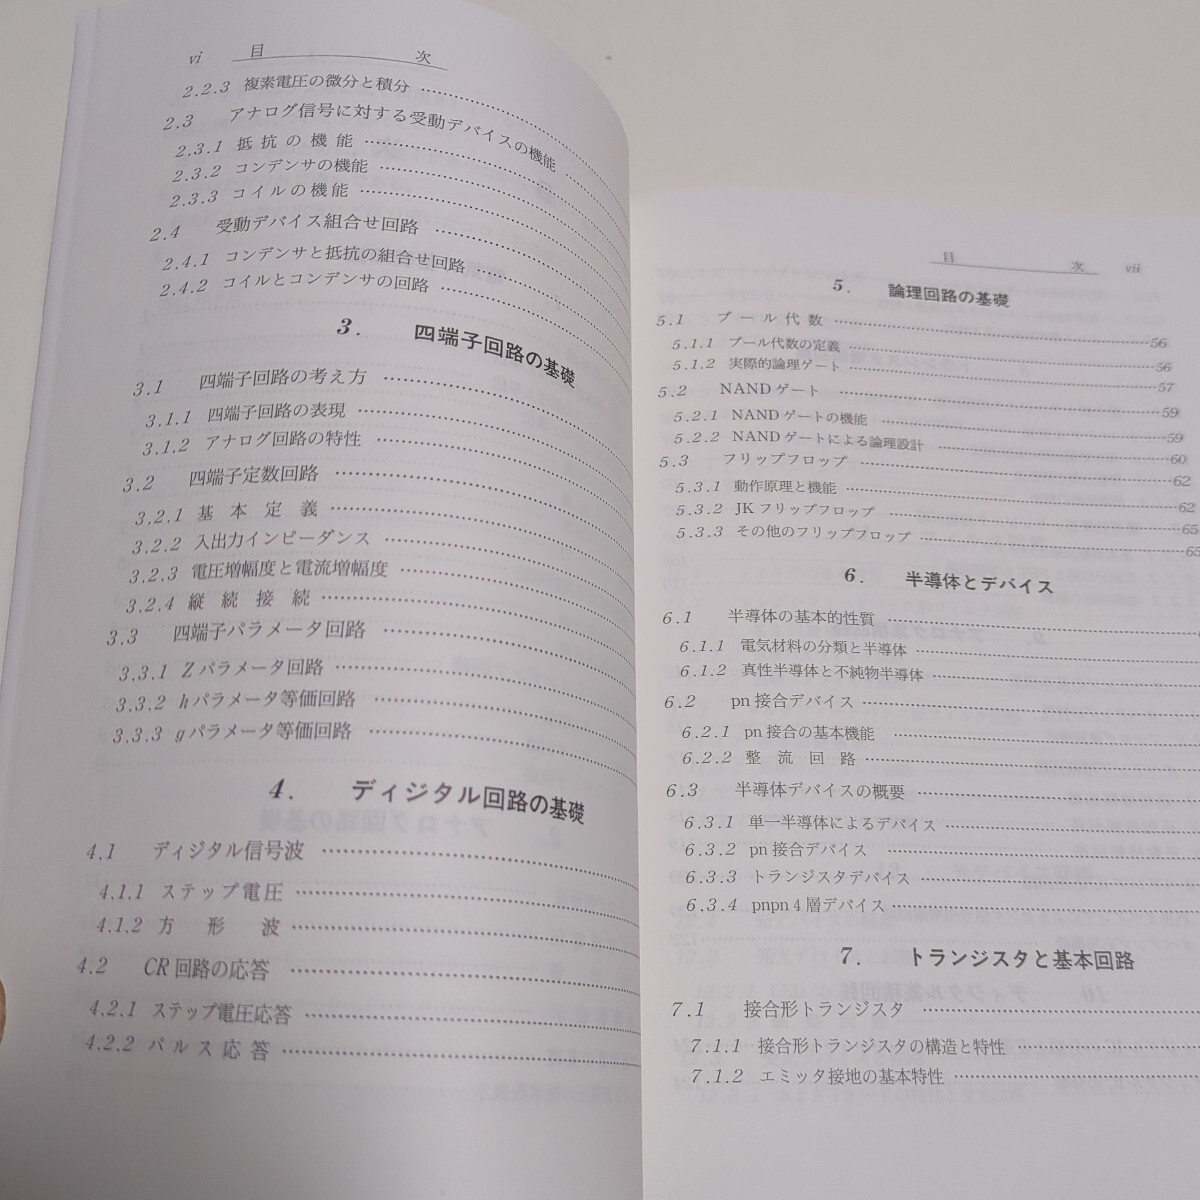 vi 目 次
2.2.3 複素電圧の微分と積分
2.3 アナログ信号に対する受動デバイスの機能
2.3.1 抵抗の機能
2.3.2 コンデンサの機能
2.3.3 コイルの機能
2.4 受動デバイス組合せ回路
2.4.1 コンデンサと抵抗の組合せ回路
2.4.2 コイルとコンデンサの回路
3. 四端子回路の基礎
3.1 四端子回路の考え方
3.1.1 四端子回路の表現
3.1.2 アナログ回路の特性
3.2 四端子定数回路
3.2.1 基本定義
3.2.2 入出力インピーダンス
3.2.3 電圧増幅度と電流増幅度
3.2.4 縦続接続
3.3 四端子パラメータ回路
3.3.1 Zパラメータ回路
3.3.2 hパラメータ等価回路
3.3.3 gパラメータ等価回路
4. ディジタル回路の基礎
4.1 ディジタル信号波
4.1.1 ステップ電圧
4.1.2 方形波
4.2 CR回路の応答
4.2.1 ステップ電圧応答
4.2.2 パルス応答
目 次 vii
5. 論理回路の基礎
5.1 ブール代数 56
5.1.1 ブール代数の定義 56
5.1.2 実際的論理ゲート 57
5.2 NANDゲート 59
5.2.1 NANDゲートの機能 59
5.2.2 NANDゲートによる論理設計 60
5.3 フリップフロップ 62
5.3.1 動作原理と機能 62
5.3.2 JKフリップフロップ 65
5.3.3 その他のフリップフロップ 65
6. 半導体とデバイス
6.1 半導体の基本的性質
6.1.1 電気材料の分類と半導体
6.1.2 真性半導体と不純物半導体
6.2 pn接合デバイス
6.2.1 pn接合の基本機能
6.2.2 整流回路
6.3 半導体デバイスの概要
6.3.1 単一半導体によるデバイス
6.3.2 pn接合デバイス
6.3.3 トランジスタデバイス
6.3.4 pnpn4層デバイス
7. トランジスタと基本回路
7.1 接合形トランジスタ
7.1.1 接合形トランジスタの構造と特性
7.1.2 エミッタ接地の基本特性